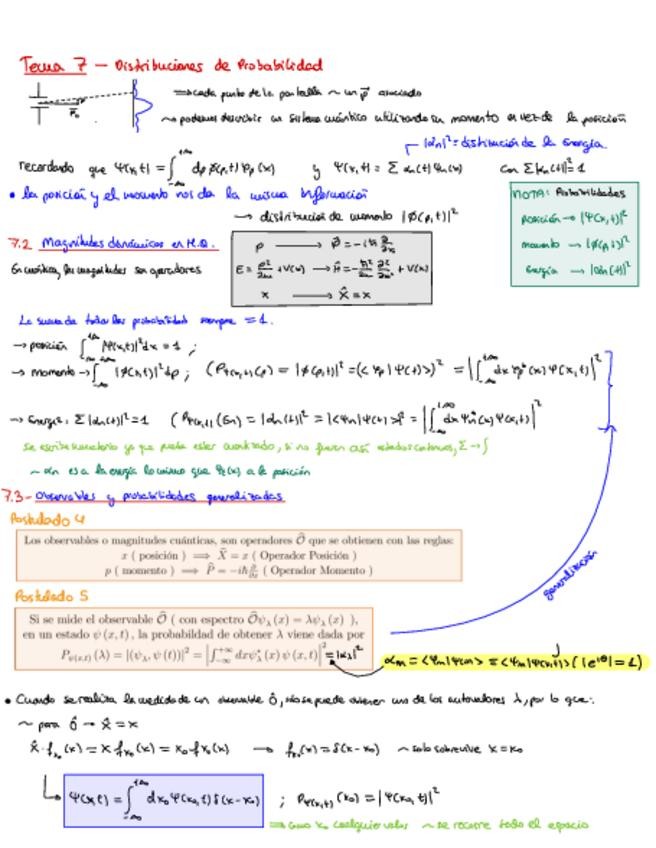 Tema 7 — Distribuciones de Probabilidad
⇒ cada punto de la pantalla ~ un p⃗ asociado
P⃗₀
~> podemos describir un sistema cuántico utilizando su momento en vez de la posición
|αn|² = distribución de la energía
recordando que Ψ(x,t) = ∫_{-∞}^{+∞} dp ϕ(p,t) Ψp(x) y Ψ(x,t) = Σ αn(t) Ψn(x) con Σ|αn(t)|² = 1
• la posición y el momento nos da la misma información
→ distribución de momento |ϕ(p,t)|²
NOTA: Probabilidades
posición → |Ψ(x,t)|²
momento → |ϕ(p,t)|²
Energía → |αn(t)|²
7.2 Magnitudes dinámicas en M.Q.
En cuántica, las magnitudes son operadores
p ⟶ p̂ = -iħ ∂/∂x
E = p²/2m + V(x) → Ĥ = -ħ²/2m ∂²/∂x² + V(x)
x ⟶ X̂ = x
La suma de todas las probabilidad siempre = 1.
→ posición ∫_{-∞}^{+∞} |Ψ(x,t)|² dx = 1 ;
→ momento → ∫_{-∞}^{+∞} |ϕ(p,t)|² dp ; (P_{Ψ(x,t)}(p) = |ϕ(p,t)|² = (<Ψp|Ψ(t)>)² = |∫_{-∞}^{+∞} dx Ψp*(x) Ψ(x,t)|²
→ Energía: Σ |αn(t)|² = 1 (P_{Ψ(x,t)}(En) = |αn(t)|² = |<Ψn|Ψ(t)>|² = |∫_{-∞}^{+∞} dx Ψn*(x) Ψ(x,t)|²
Se escribe sumatorio ya que puede estar cuantizado, si no fuera así estados continuos, Σ → ∫
~ αn es a la energía lo mismo que a la posición
7.3 - Observables y probabilidades generalizadas
Postulado 4
Los observables o magnitudes cuánticas, son operadores Ô que se obtienen con las reglas:
x ( posición ) ⟹ X̂ = x ( Operador Posición )
p ( momento ) ⟹ P̂ = -iħ ∂/∂x ( Operador Momento )
generalización
Postulado 5
Si se mide el observable Ô ( con espectro Ôψλ(x) = λψλ(x) ),
en un estado ψ(x,t), la probabilidad de obtener λ viene dada por
P_{ψ(x,t)}(λ) = |(ψλ, ψ(t))|² = |∫_{-∞}^{+∞} dxψλ*(x) ψ(x,t)|² = |αλ|²
αm = <Ψm|Ψ(m> = <Ψm|Ψ(x,t)> (|e^{iθ}| = 1)
• Cuando se realiza la medida de un observable Ô, sólo se puede obtener uno de los autovalores λ, por lo que:
~ para Ô → X̂ = x
X̂ · f_{x₀}(x) = x f_{x₀}(x) = x₀ f_{x₀}(x) → f_{x₀}(x) = δ(x-x₀) ~ solo sobrevive x = x₀
Ψ(x,t) = ∫_{-∞}^{+∞} dx₀ Ψ(x₀,t) δ(x-x₀) ; P_{Ψ(x,t)}(x₀) = |Ψ(x₀,t)|²
⇒ como x₀ cualquier valor ~ se recorre todo el espacio